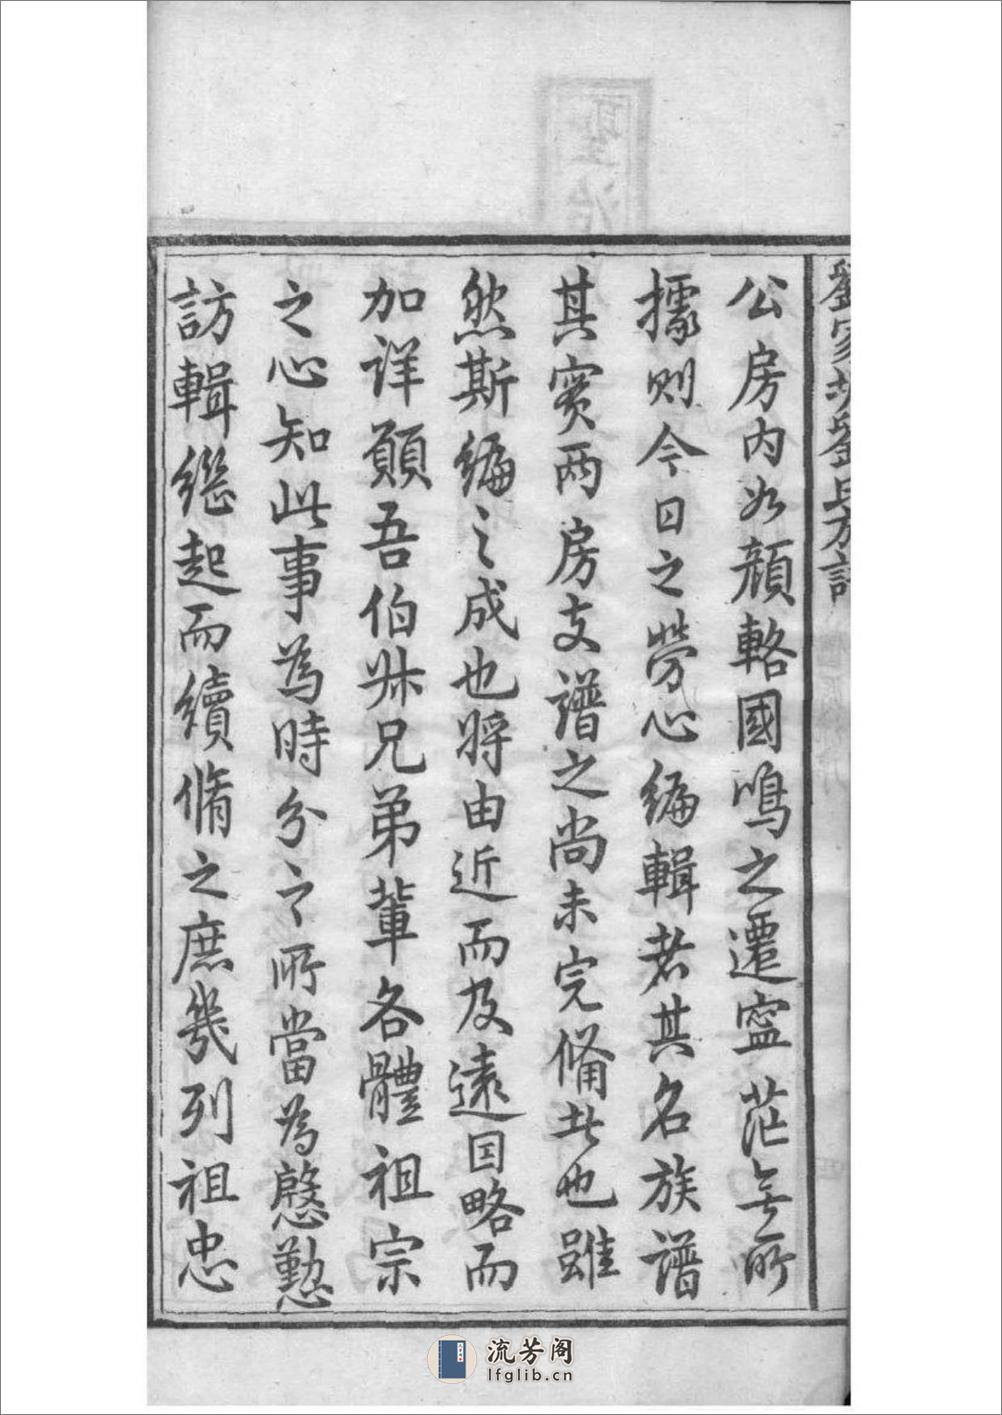 公房内如顔輅國鳴之遷寧茫無所
據則今日之勞心編輯者其名族譜
其實两房支譜之尚未完備者也雖
然斯編之成也將由近而及遠因略而
加详願吾伯叔兄弟輩各體祖宗
之心知此事為時分之所當為慇懃
訪輯繼起而續脩之庶幾列祖忠
流芳阁
lfglib.cn